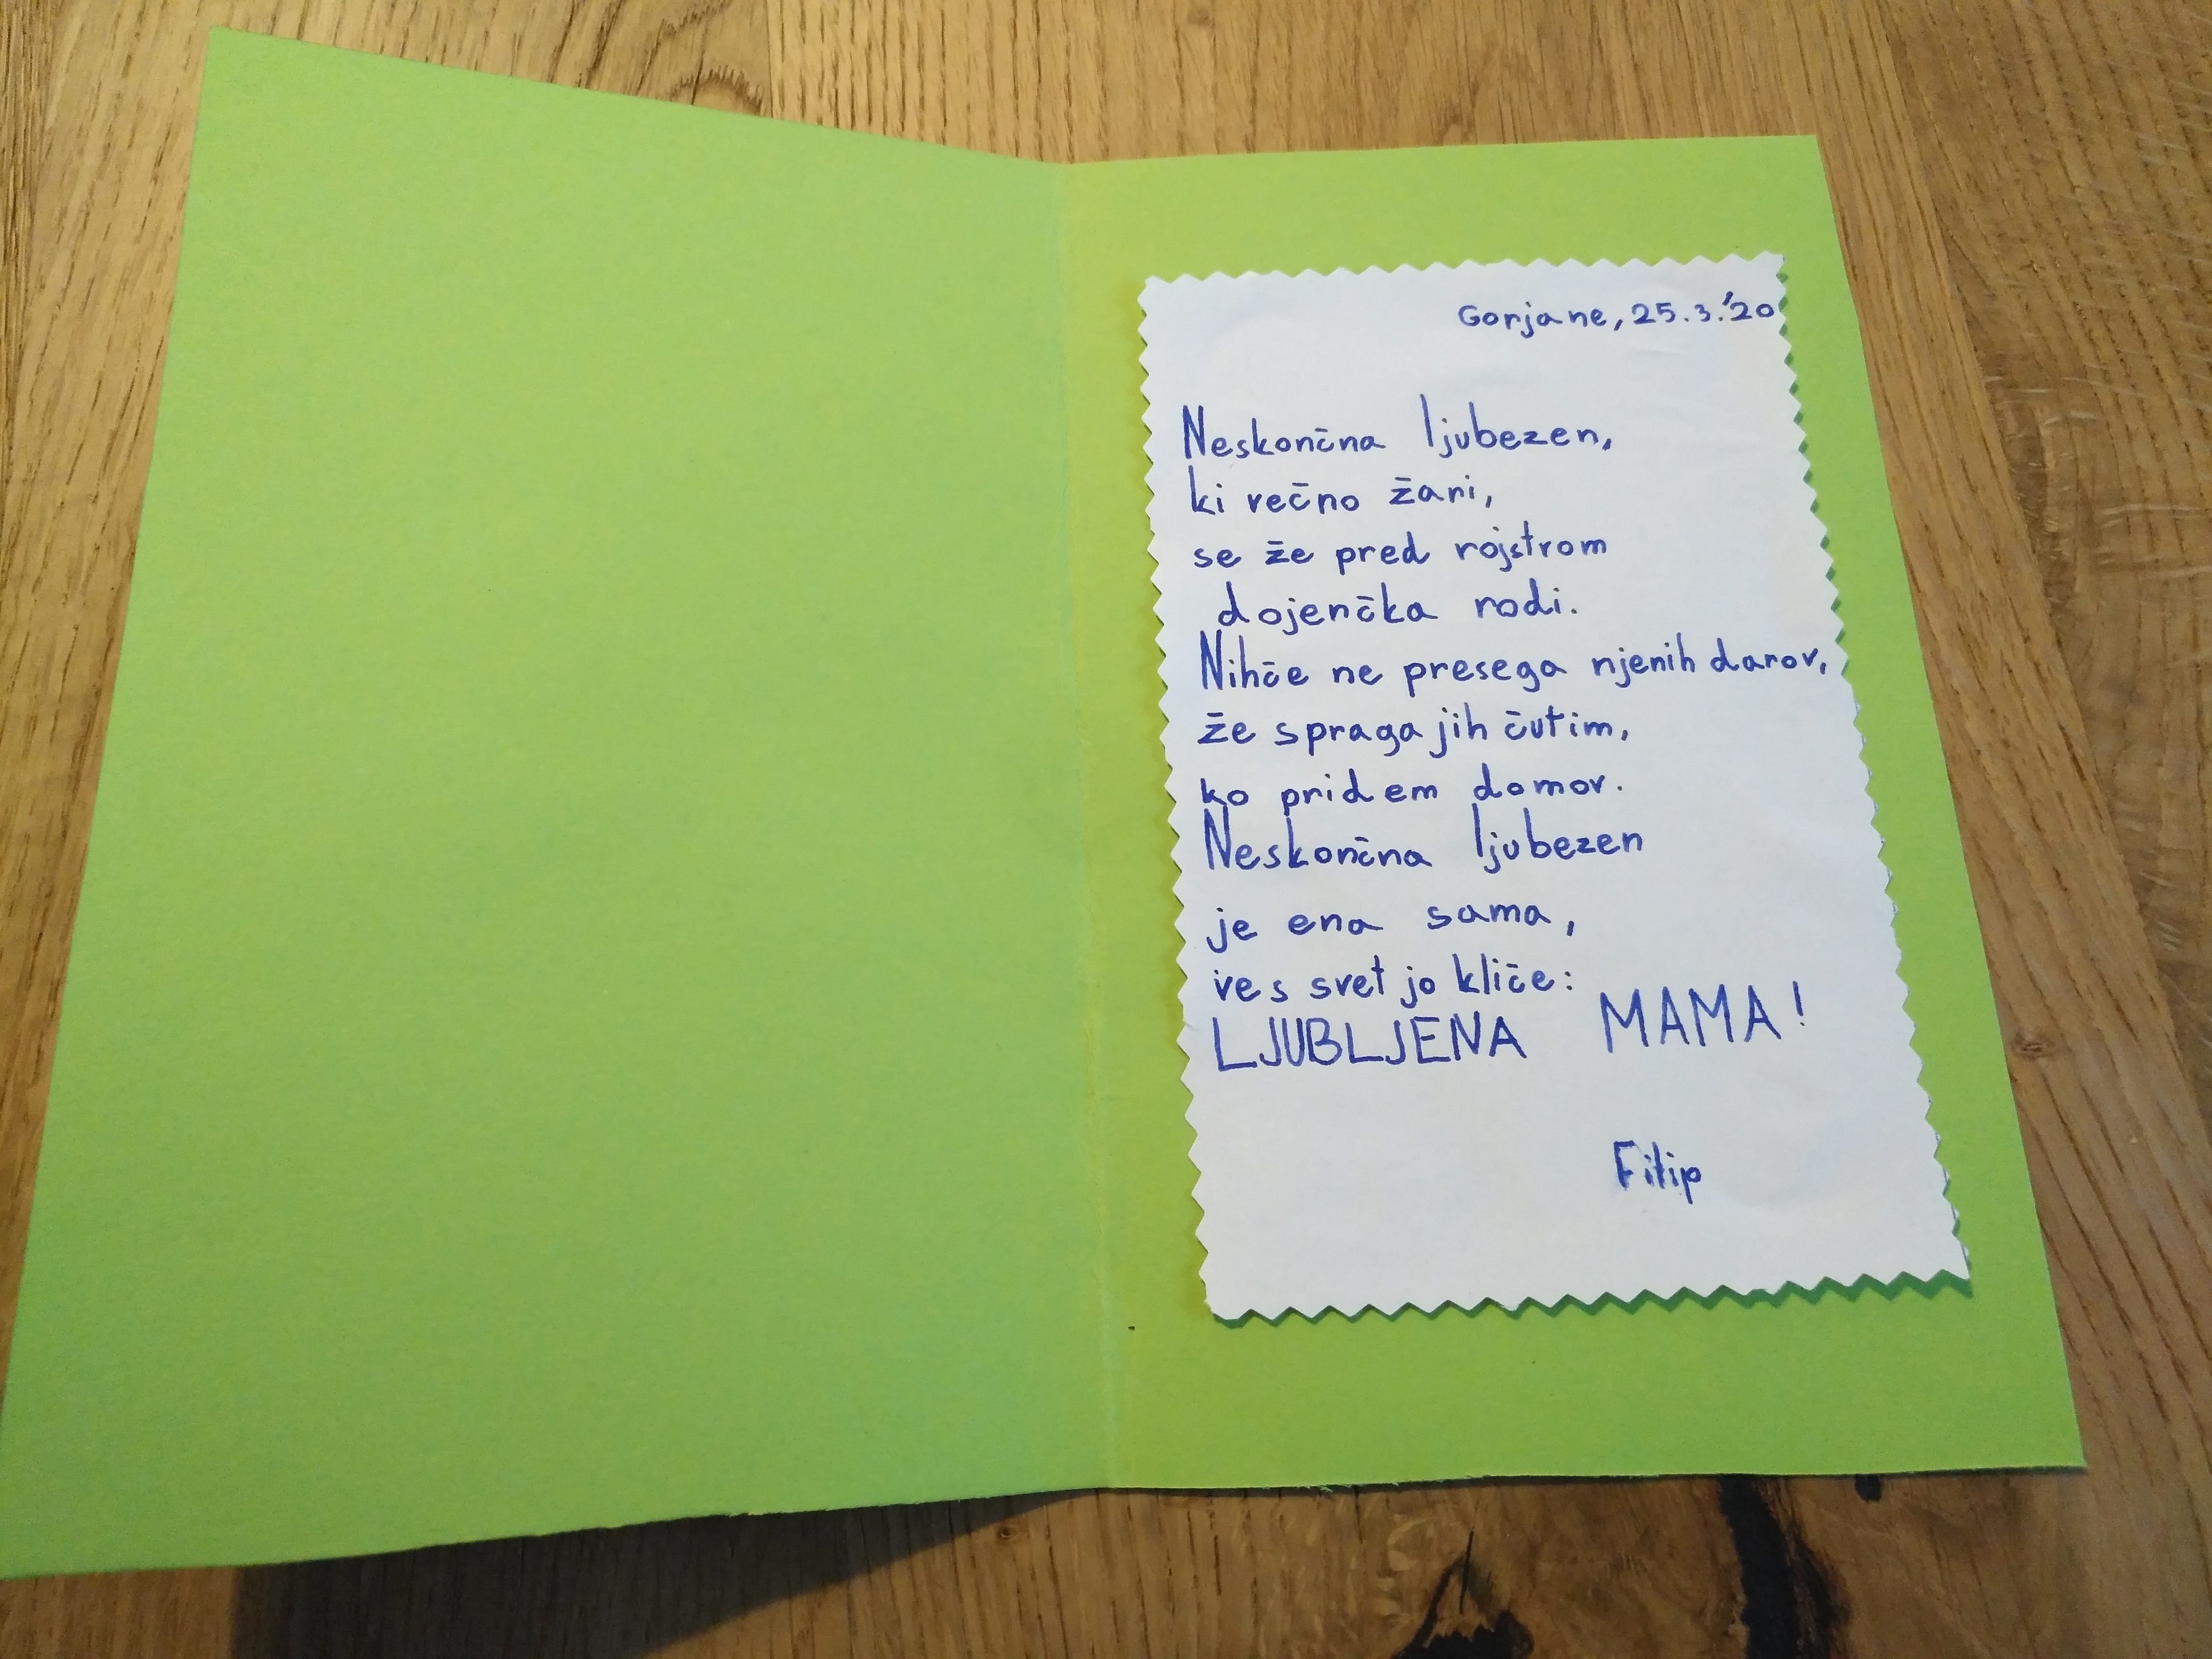 Gorjane, 25.3.'20
Neskončna ljubezen,
ki večno žari,
se že pred rojstvom
dojenčka rodi.
Nihče ne presega njenih darov,
že spraga jih čutim,
ko pridem domov.
Neskončna ljubezen
je ena sama,
ves svet jo kliče:
LJUBLJENA MAMA!
Filip